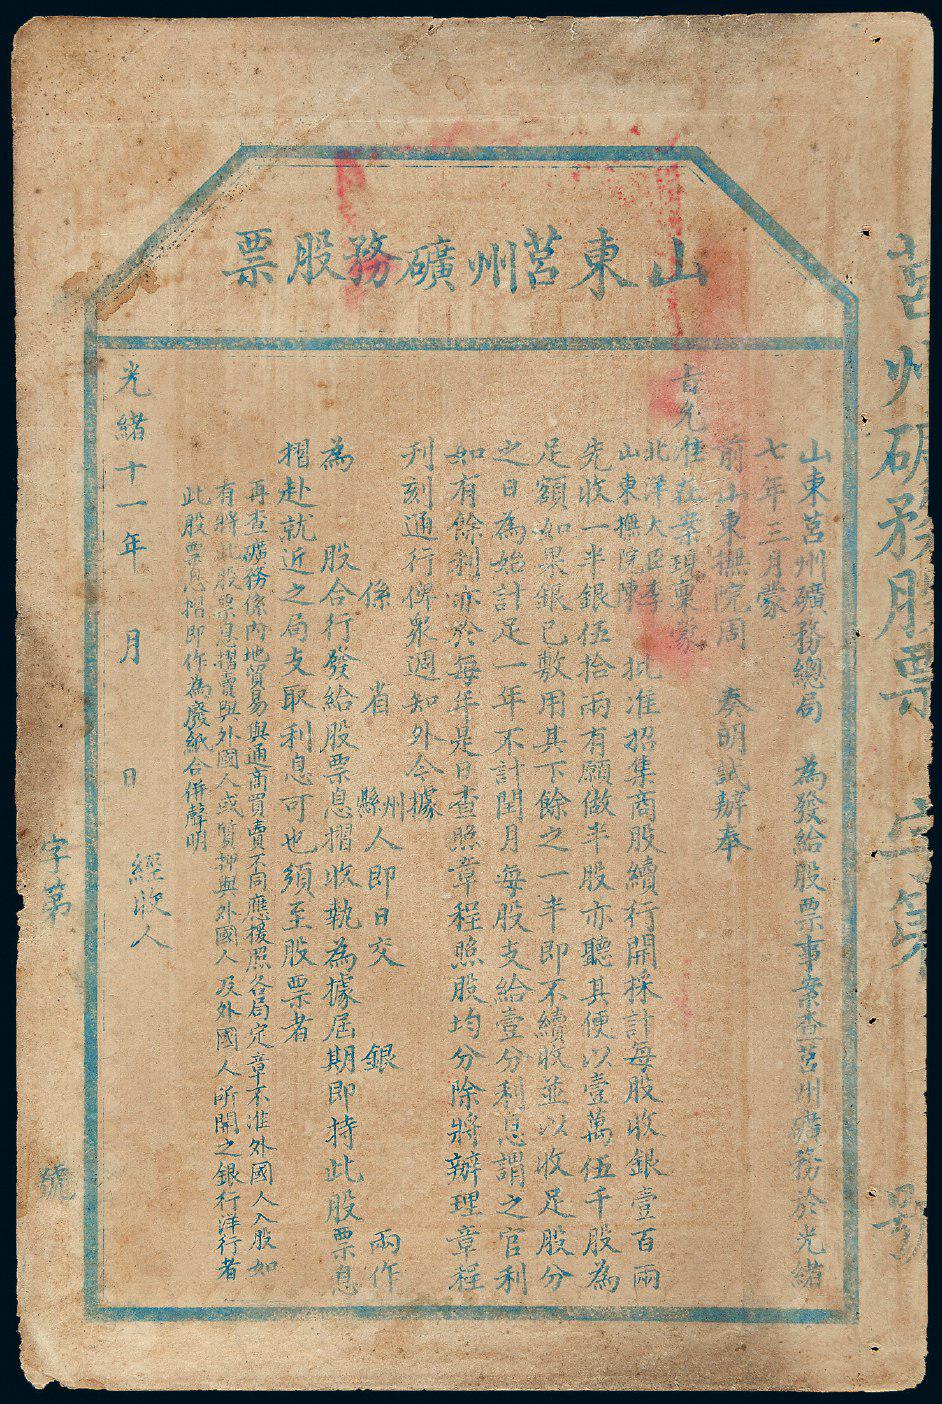 山東莒州礦務股票
山東莒州礦務總局 為發給股票事案查莒州礦務於光緒
七年三月蒙
前山東撫院周 奏明試辦奉
旨允准在案項稟蒙
北洋大臣李
山東撫院陳 批准招集商股續行開採計每股收銀壹百兩
先收一半銀伍拾兩有願做半股亦聽其便以壹萬伍千股為
足額如果銀已敷用其下餘之一半即不續收並以收足股分
之日為始計足一年不計閏月每股支給壹分利息謂之官利
如有餘利亦於每年是日查照章程照股均分除將辦理章程
刋刻通行俾衆週知外今據
係 省 州縣人即日交 銀 兩作
為 股合行發給股票息摺收執為據屆期即持此股票息
摺赴就近之局支取利息可也須至股票者
再查礦務係內地貿易與通商買賣不同應援照各局定章不准外國人入股如
有將此股票息摺賣與外國人或質押與外國人及外國人所開之銀行洋行者
此股票息摺即作為廢紙合併聲明
光緒十一年 月 日 經收人
字第 號
莒州礦務股票 字第 號